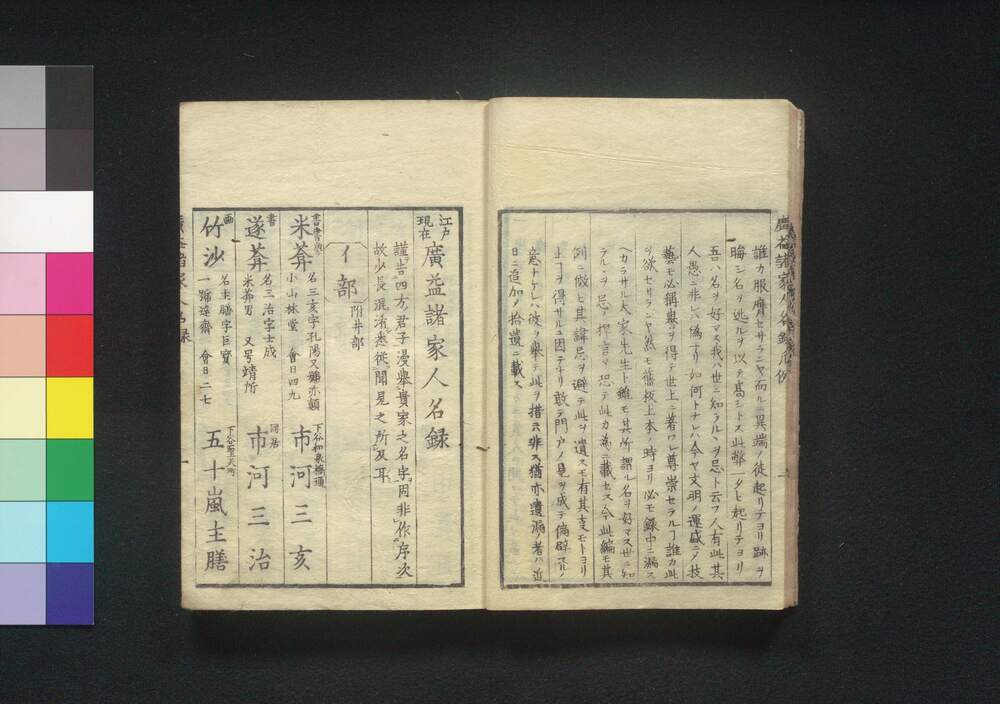 誰カ服膺セサランヤ而ルニ異端ノ徒起リテヨリ跡ヲ
晦シ名ヲ逃ルヽヲ以テ高シトス此弊一タヒ起リテヨリ
吾ハ名ヲ好マス我ハ世ニ知ラルヽヲ忌ト云フ人有此其
人愚ニ非レハ偽ナリ如何トナレハ今ヤ文明ノ運盛ニノ技
藝モ必稱譽ヲ得テ世上ニ著ワレ尊崇セラルヿ誰カ此
ヲ欲セサランヤ然モ舊板上本ノ時ヨリ必モ録中ニ漏ス
ヘカラサル大家先生ト雖モ其所謂ル名ヲ好マス世ニ知
ラルヽヲ忌ノ抑言ヲ恐テ此カ為ニ載セス今此編モ其
例ニ倣ヒ其諱忌ヲ避テ此ヲ遺スモ有其支モトヨリ
止ヿヲ得サルニ因テナリ敢テ門戸ノ見ヲ成テ偏僻スルノ
意ナケレハ彼ヲ舉テ此ヲ措ニ非ス猶亦遺漏ノ者ハ近
日ニ追加ノ拾遺ニ載ス
江戸
現在
廣益諸家人名録
謹告四方ノ君子漫舉貴家之名字固非作序次
故少長混淆悉從聞見之所及耳
イ部
附井部
書
米葊
名三亥字孔陽又號亦顛
小山林堂 會日四九
下谷和泉橋通
市河三亥
書
遂葊
名三治字士成
米葊男 又号靖所
同居
市河三治
画
竹沙
名主膳字巨寶
一號遠齋 會日二七
下谷聖天町
五十嵐主膳